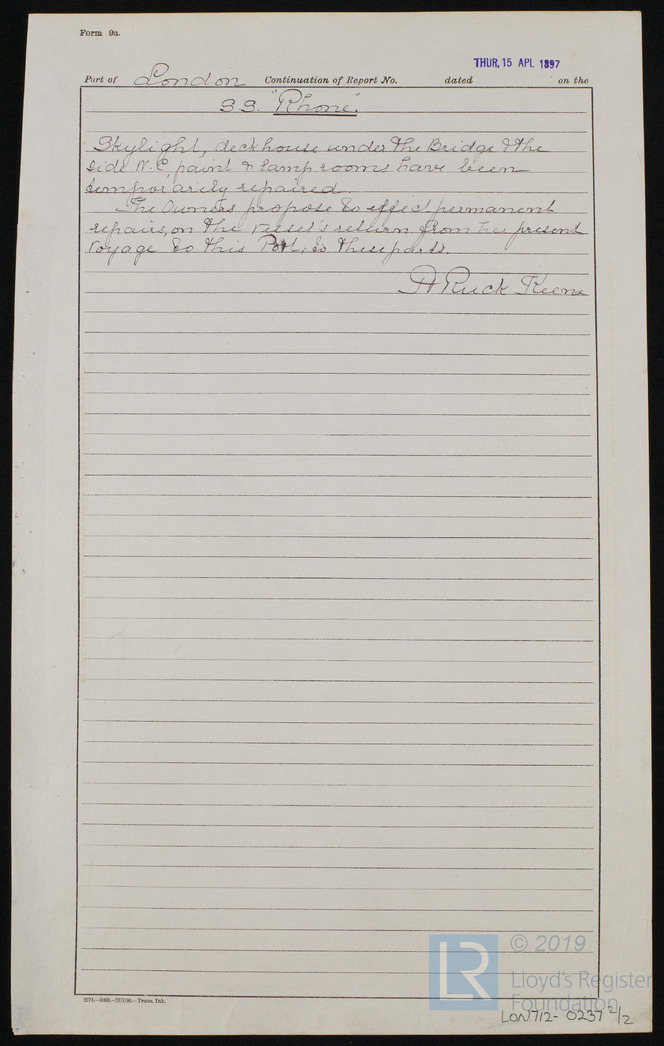 Form 9a.
THUR, 15 APL 1897
Port of London Continuation of Report No. dated on the
S S. "Rhone".
Skylight, deckhouse under the Bridge & the
side W. C, paint & lamp rooms have been
temporarily repaired.
The Owners propose to effect permanent
repairs, on the vessel's return from her present
voyage to this Port, to these parts.
A Ruck Keene
© 2019
Lloyd's Register
Foundation
LR
LON712-0237 2/2